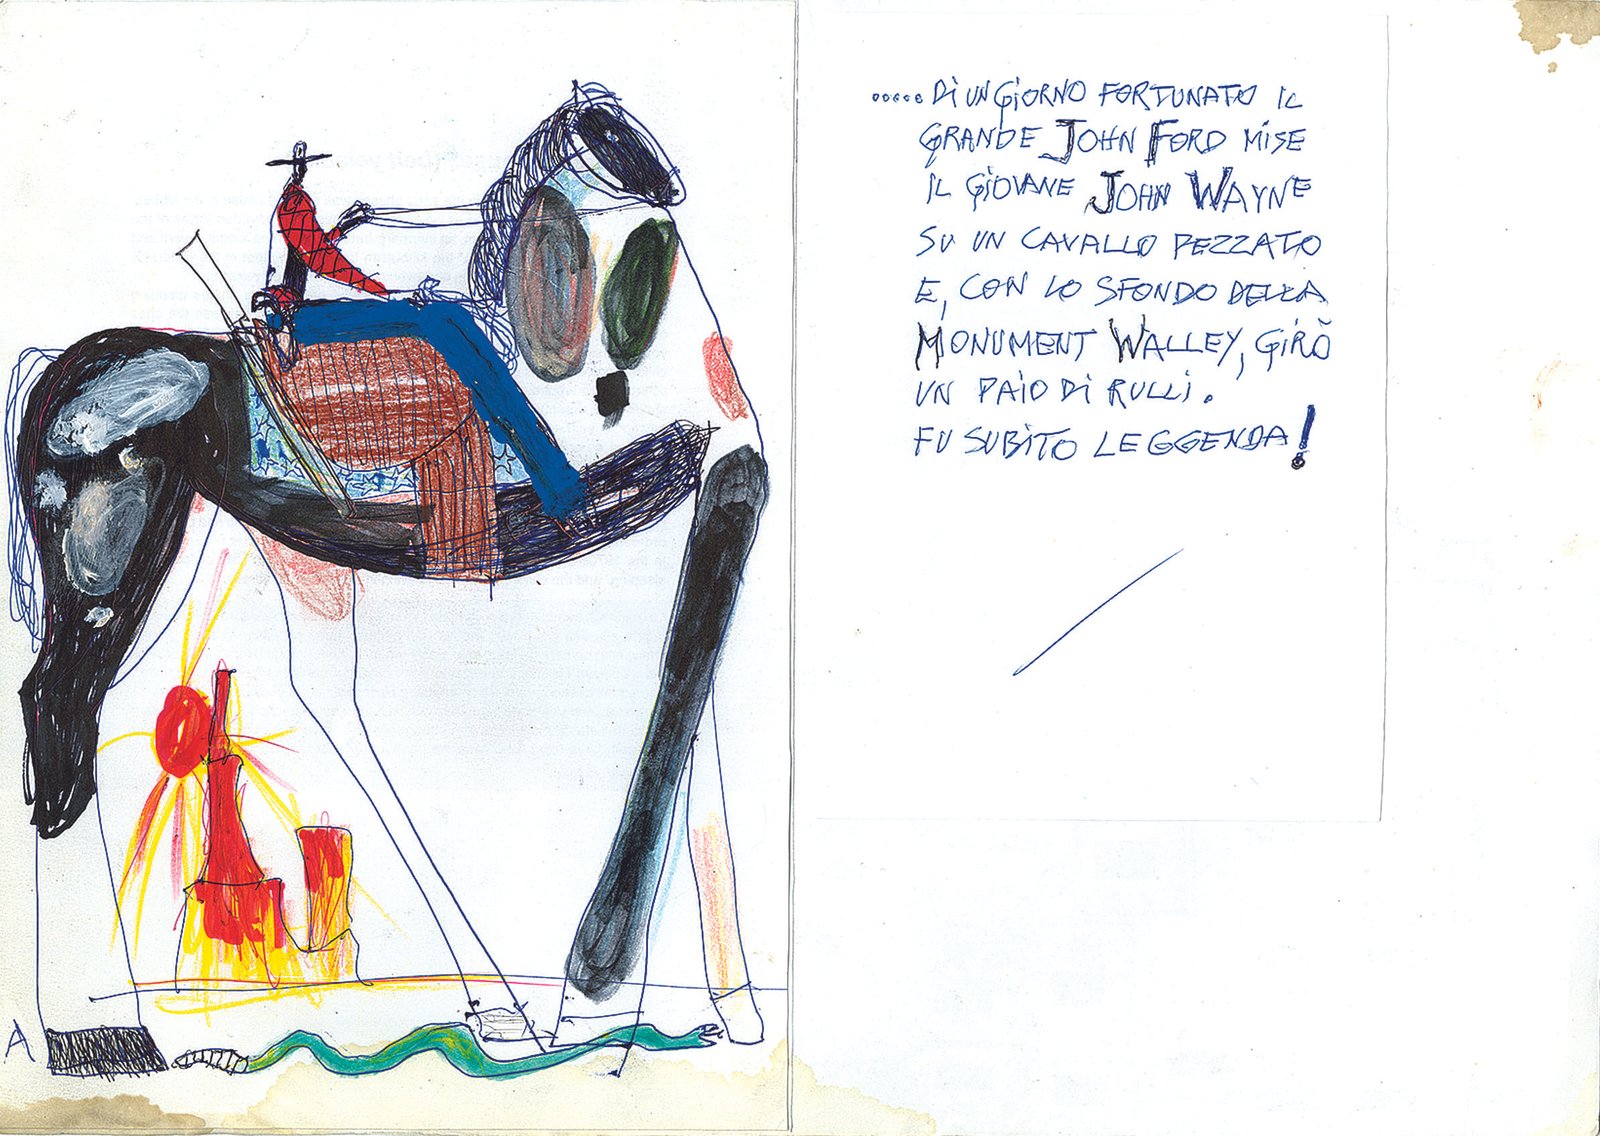 ..... DI UN GIORNO FORTUNATO IL
GRANDE JOHN FORD MISE
IL GIOVANE JOHN WAYNE
SU UN CAVALLO PEZZATO
E, CON LO SFONDO DELLA
MONUMENT WALLEY, GIRÒ
UN PAIO DI RULLI.
FU SUBITO LEGGENDA!
A